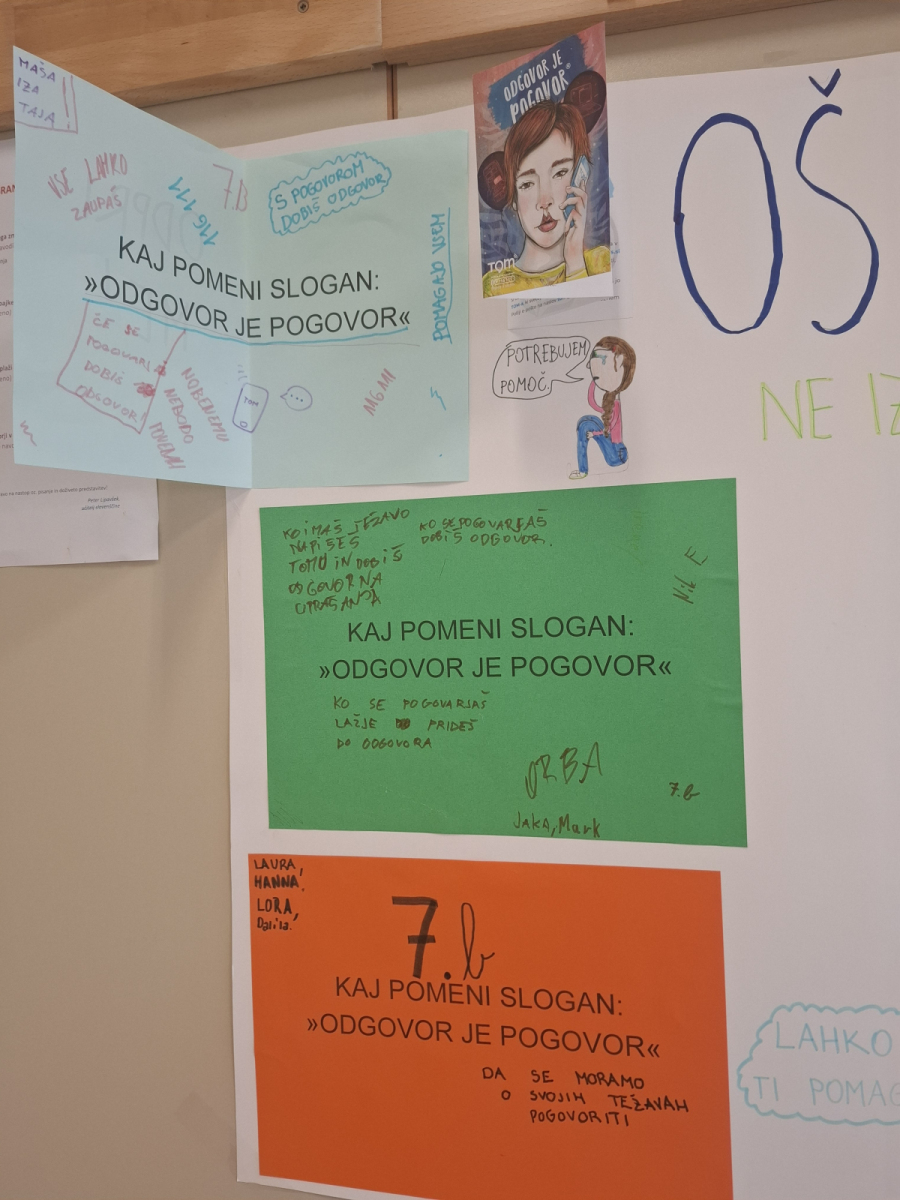 MAŠA
IZA
TAJA
VSE LAHKO
ZAUPAŠ
116 111
7.B
S POGOVOROM
DOBIŠ ODGOVOR
POMAGAJO VSEM
KAJ POMENI SLOGAN:
»ODGOVOR JE POGOVOR«
ČE SE
POGOVARJAŠ
DOBIŠ
ODGOVOR!
NOBENEMU
NEBODO
POVEDALI
TOM
ODGOVOR JE
POGOVOR
TOM
POTREBUJEM
POMOČ.
OŠ
NE
KO IMAŠ TEŽAVO
NAPIŠEŠ
TOMU IN DOBIŠ
ODGOVOR NA
VPRAŠANJA
KO SE POGOVARJAŠ
DOBIŠ ODGOVOR.
Nik E
KAJ POMENI SLOGAN:
»ODGOVOR JE POGOVOR«
KO SE POGOVARJAŠ
LAŽJE PRIDEŠ
DO ODGOVORA
URBA
JAKA, Mark
7.b
LAURA,
HANNA,
LORA,
Dalila.
7.b
KAJ POMENI SLOGAN:
»ODGOVOR JE POGOVOR«
DA SE MORAMO
O SVOJIH TEŽAVAH
POGOVORITI
LAHKO
TI POMAG